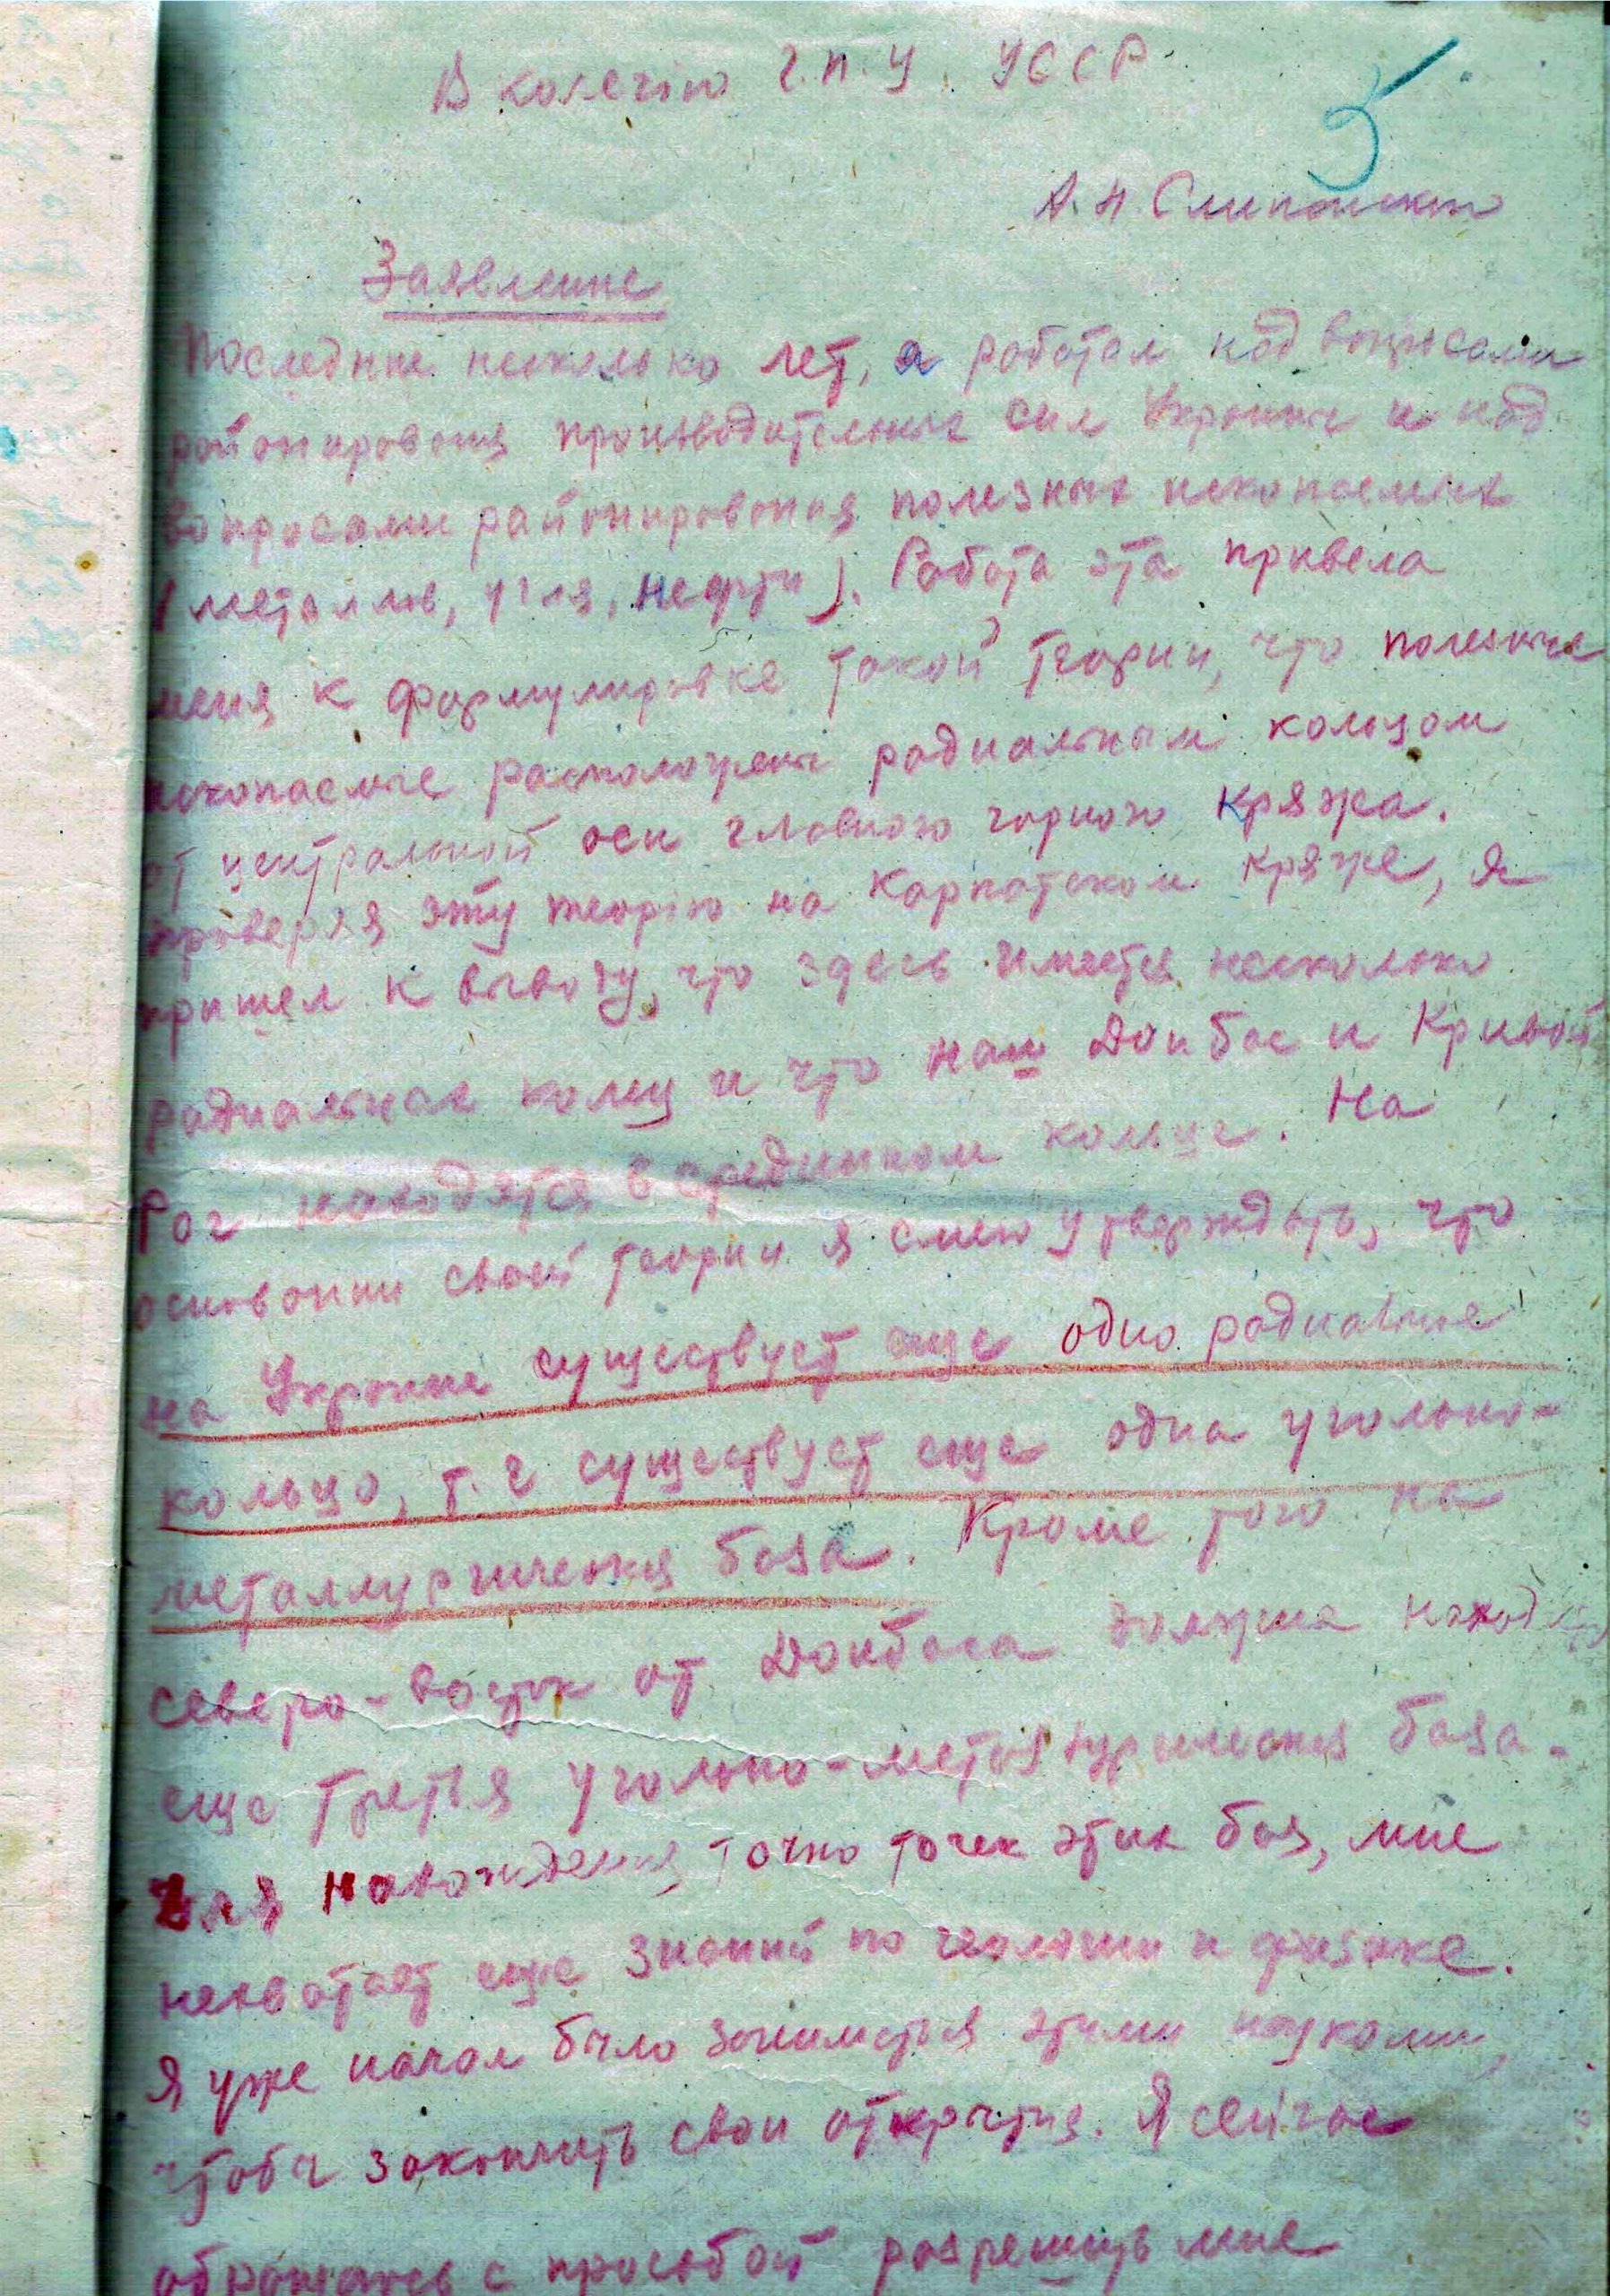 В колегію Г.П.У. УССР
5
А. А. Слипанского
Заявление
Последние несколько лет, я работал над вопросами
районирования производительных сил Украины и над
вопросами районирования полезных ископаемых
(металлов, угля, нефти). Работа эта привела
меня к формулировке такой теории, что полезные
ископаемые расположены радиальным кольцом
от центральной оси главного горного кряжа.
Проверяя эту теорию на Карпатском кряже, я
пришел к выводу, что здесь имеется несколько
радиальных колец и что наш Донбас и Кривой
Рог находятся в срединном кольце. На
основании своей теории я смею утверждать, что
на Украине существует еще одно радиальное
кольцо, т. е существует еще одна угольно-
металлургическая база. Кроме того на
северо-восток от Донбаса должна находиться
еще третья угольно-металлургическая база.
Для нахождения точно точек этих баз, мне
нехватает еще знаний по геологии и физике.
Я уже начал было заниматься этими науками,
чтобы закончить свои открытия. Я сейчас
обращаюсь с просьбой разрешить мне